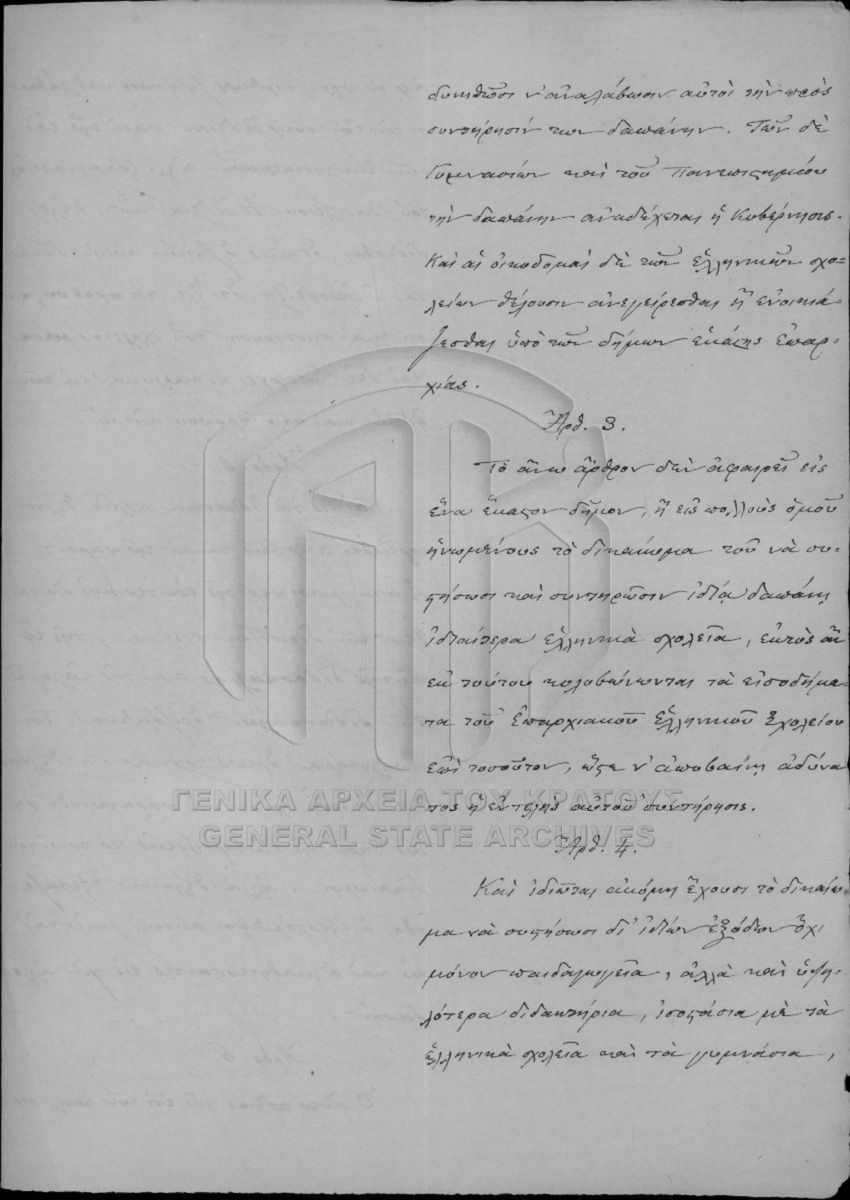 δυνηθῶσι ν' ἀναλάβωσιν αὐτοὶ τὴν πρὸς
συντήρησίν των δαπάνην. Τῶν δὲ
Γυμνασίων καὶ τοῦ Πανεπιστημίου
τὴν δαπάνην ἀναδέχεται ἡ Κυβέρνησις.
Καὶ αἱ οἰκοδομαὶ δὲ τῶν ἑλληνικῶν σχο-
λείων θέλουσιν ἀνεγείρεσθαι ἢ ἐνοικιά-
ζεσθαι ὑπὸ τῶν δήμων ἑκάστης ἐπαρ-
χίας.
Ἄρθ. 3.
Τὸ ἄνω ἄρθρον δὲν ἀφαιρεῖ εἰς
ἕνα ἕκαστον δῆμον, ἢ εἰς πολλοὺς ὁμοῦ
ἡνωμένους τὸ δικαίωμα τοῦ νὰ συ-
στήσωσι καὶ συντηρῶσιν ἰδίᾳ δαπάνῃ
ἰδιαίτερα ἑλληνικὰ σχολεῖα, ἐκτὸς ἂν
ἐκ τούτου κολοβώνωνται τὰ εἰσοδήμα-
τα τοῦ Ἐπαρχιακοῦ Ἑλληνικοῦ Σχολείου
ἐπὶ τοσοῦτον, ὥστε ν' ἀποβαίνῃ ἀδύνα-
τος ἡ ἐντελὴς αὐτοῦ συντήρησις.
ΓΕΝΙΚΑ ΑΡΧΕΙΑ ΤΟΥ ΚΡΑΤΟΥΣ
GENERAL STATE ARCHIVES
Ἄρθ. 4.
Καὶ ἰδιῶται ἀκόμη ἔχουσι τὸ δικαίω-
μα νὰ συστήσωσι δι' ἰδίων ἐξόδων ὄχι
μόνον παιδαγωγεῖα, ἀλλὰ καὶ ὑψη-
λότερα διδακτήρια, ἰσοστάσια μὲ τὰ
ἑλληνικὰ σχολεῖα καὶ τὰ γυμνάσια,